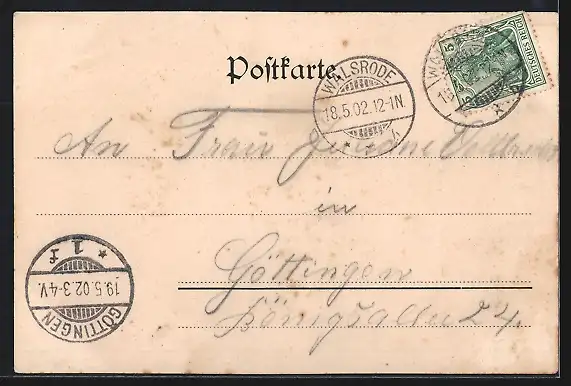 Postkarte.
WALSRODE
18.5.02.12-1N.
h
5
DEUTSCHES REICH
An Frau
in
Göttingen
Königsallee 24.
* 1 f
19.5.02.3-4V.
GÖTTINGEN